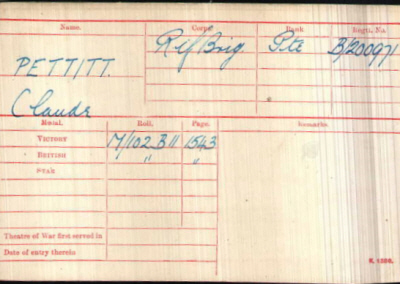 Name. Corps. Rank. Regtl. No.
PETTITT. Rif Brig. Pte B/200971
Claude
Medal. Roll. Page. Remarks
VICTORY M/102 B11 1543
BRITISH " "
STAR
Theatre of War first served in
Date of entry therein
K. 1380.